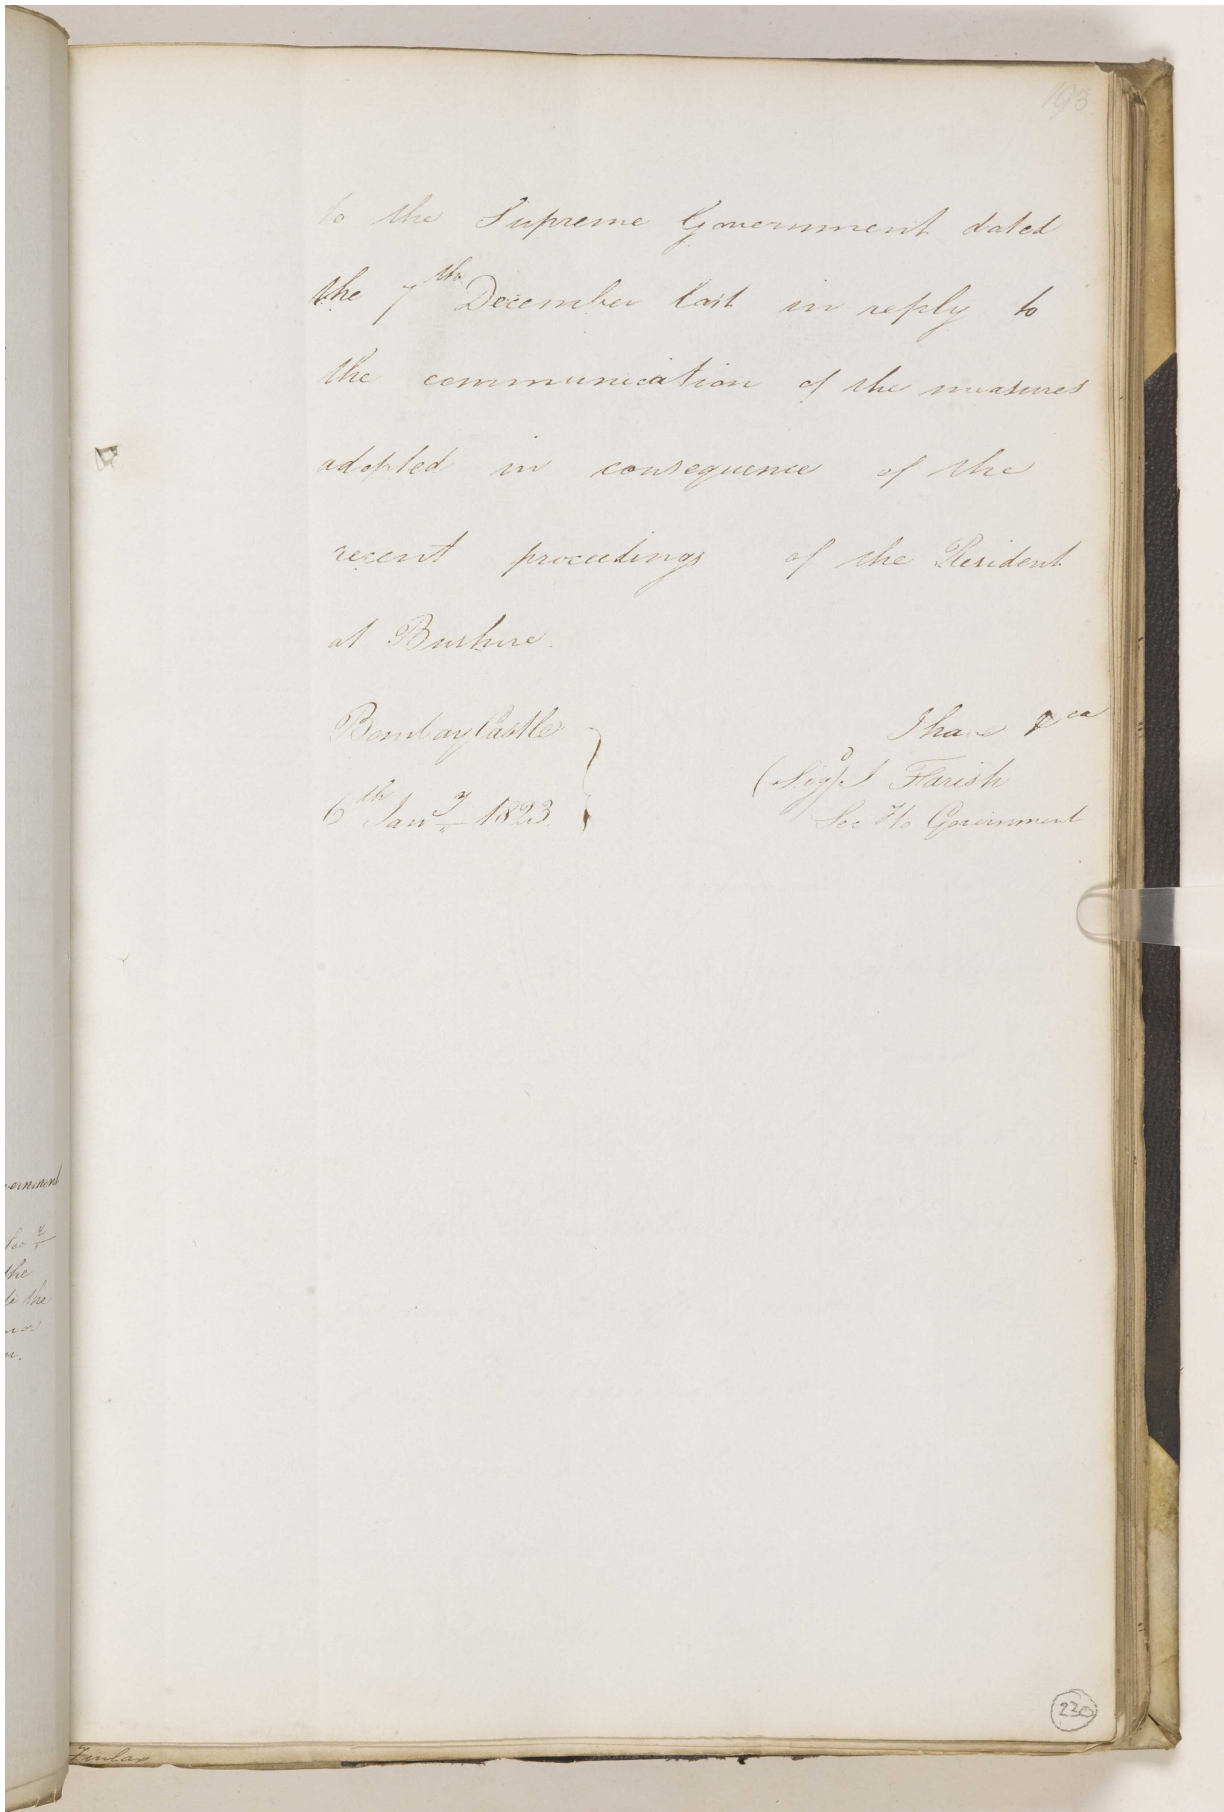 193
to the Supreme Government dated
the 7th December last in reply to
the communication of the measures
adopted in consequence of the
recent proceedings of the Resident
at Bushire.
Bombay Castle
6th Jany 1823
I have &ca
(Sigd) J. Farish
Sec to Government
230
vernment
the
to the